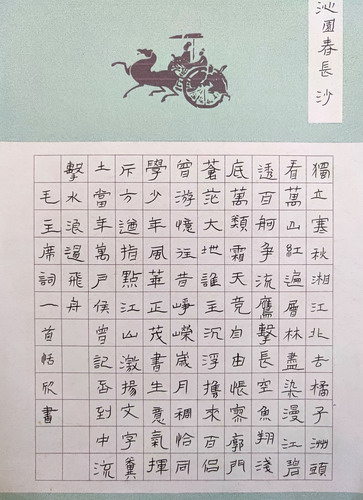 沁園春長沙
獨立塞秋湘江北去橘子洲頭
看萬山紅遍層林盡染漫江碧
透百舸爭流鷹擊長空魚翔淺
底萬類霜天競自由悵寥廓門
蒼茫大地誰主沉浮攜來百侶
曾游憶往昔崢嶸歲月稠恰同
學少年風華正茂書生意氣揮
斥方遒指點江山激揚文字糞
土當年萬戶侯曾記否到中流
擊水浪遏飛舟
毛主席詞一首恬欣書